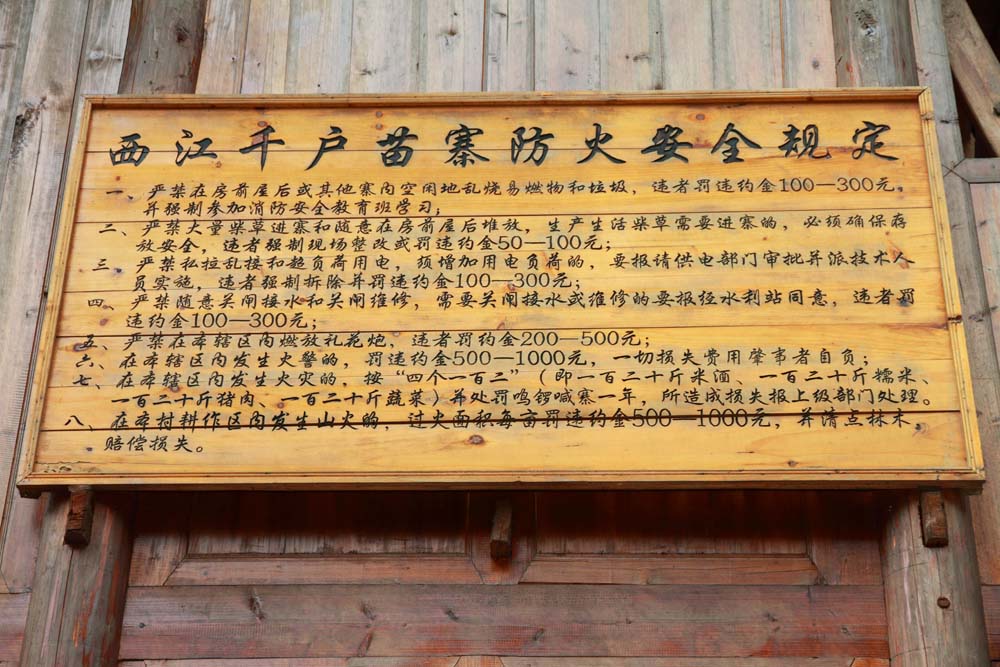 西江千户苗寨防火安全规定
一、严禁在房前屋后或其他寨内空闲地乱烧易燃物和垃圾，违者罚违约金100—300元，
并强制参加消防安全教育班学习；
二、严禁大量柴草进寨和随意在房前屋后堆放，生产生活柴草需要进寨的，必须确保存
放安全，违者强制现场整改或罚违约金50—100元；
三、严禁私拉乱接和超负荷用电，须增加用电负荷的，要报请供电部门审批并派技术人
员实施，违者强制拆除并罚违约金100—300元；
四、严禁随意关闸接水和关闸维修，需要关闸接水或维修的要报经水利站同意，违者罚
违约金100—300元；
五、严禁在本辖区内燃放礼花炮、违者罚约金200—500元；
六、在本辖区内发生火警的，罚违约金500—1000元，一切损失费用肇事者自负；
七、在本辖区内发生火灾的，按“四个一百二”（即一百二十斤米酒、一百二十斤糯米、
一百二十斤猪肉、一百二十斤蔬菜）并处罚鸣锣喊寨一年，所造成损失报上级部门处理。
八、在本村耕作区内发生山火的，过火面积每亩罚违约金500—1000元，并清点林木，
赔偿损失。